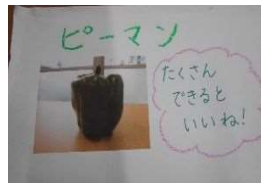 ピーマン
たくさん
できると
いいね!